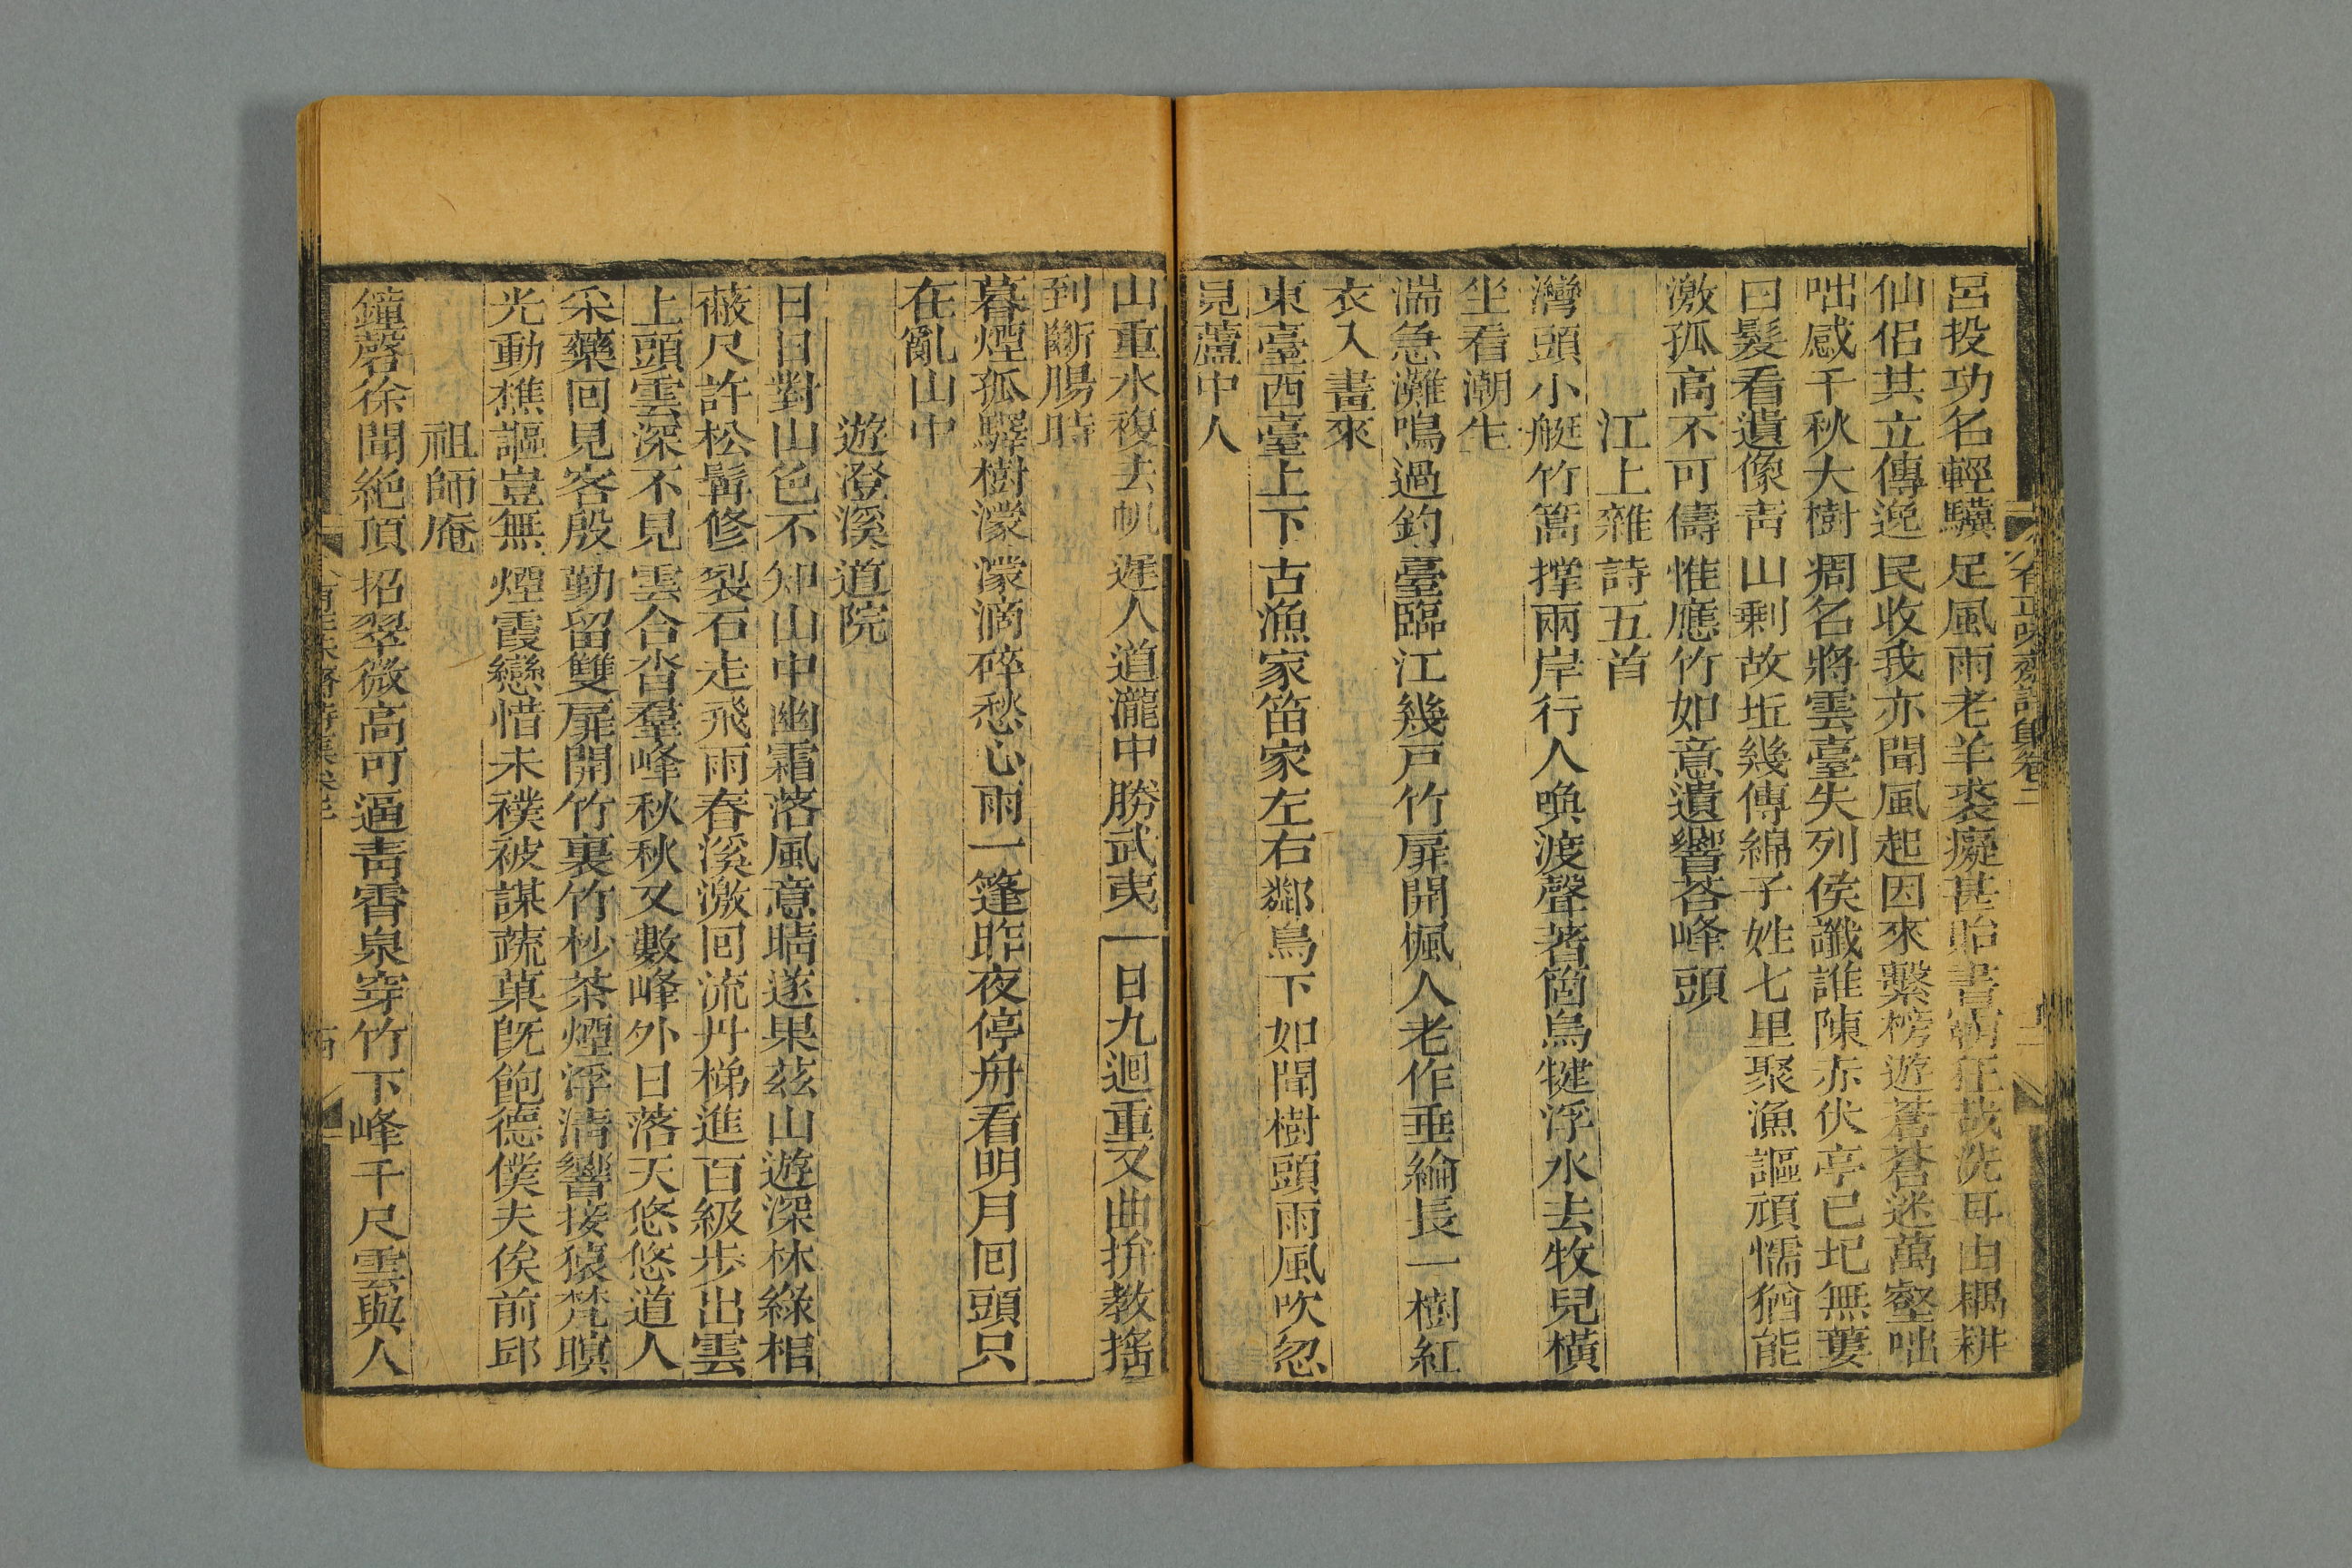 呂投功名輕驥足風雨老羊裘癡甚貽書霸狂哉洗耳由耦耕
仙侶其立傳逸民收我亦聞風起因來繫榜遊蒼蒼迷萬壑咄
咄感千秋大樹凋名將雲臺失列侯讖誰陳赤伏亭已圮無蔞
曰髮看遺像靑山剩故坵幾傳綿子姓七里聚漁謳頑懦猶能
激孤高不可儔惟應竹如意遺響荅峰頭
江上雜詩五首
灣頭小艇竹篙撐兩岸行人喚渡聲著箇烏犍浮水去牧兒橫
坐看潮生
湍急灘鳴過釣臺臨江幾戸竹扉開楓人老作垂綸長一樹紅
衣入畫來
東臺西臺上下古漁家笛家左右鄰鳥下如聞樹頭雨風吹忽
見蘆中人
山重水複去帆遲人道瀧中勝武夷一日九迴重又曲拚教搖
到斷腸時
暮煙孤驛樹濛濛滴碎愁心雨一篷昨夜停舟看明月回頭只
在亂山中
遊澄溪道院
日日對山色不知山中幽霜落風意晴遂果茲山遊深林綠相
蔽尺許松髯修裂石走飛雨春溪激回流丹梯進百級步出雲
上頭雲深不見雲合沓羣峰秋秋又數峰外日落天悠悠道人
采藥回見客殷勤留雙扉開竹裏竹杪茶煙浮淸響接猿梵暝
光動樵謳豈無煙霞戀惜未襆被謀蔬菓旣飽德僕夫俟前邱
祖師庵
鐘磬徐聞絶頂招翠微高可逼靑霄泉穿竹下峰千尺雲與人
有正味齋詩集卷二